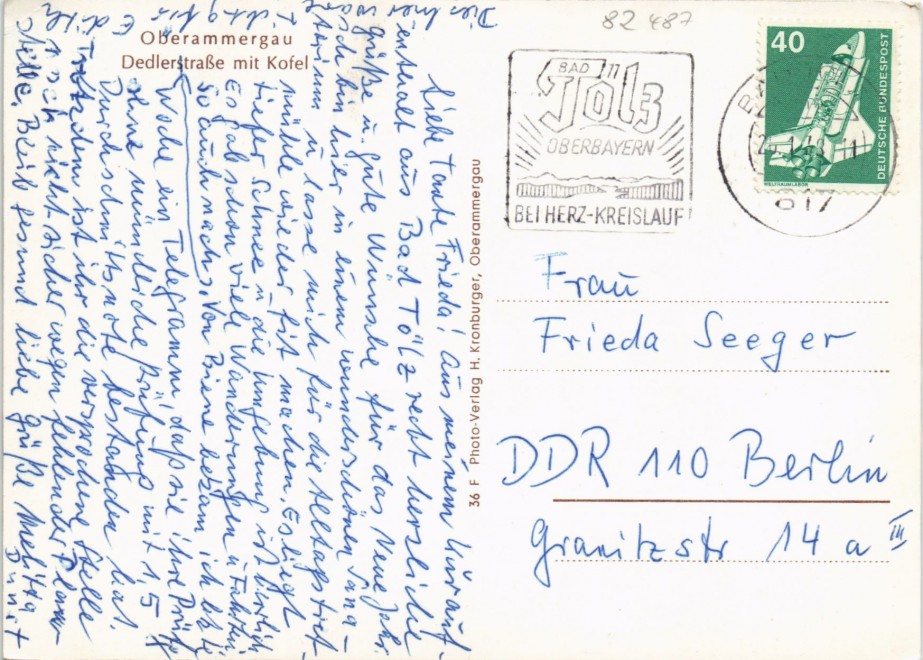 82 487
Oberammergau
Dedlerstraße mit Kofel
BAD TÖLZ
OBERBAYERN
BEI HERZ-KREISLAUF
817
40
DEUTSCHE BUNDESPOST
WELTRAUMLABOR
Liebe Tante Frieda! Aus meinem Kurauf-
enthalt aus Bad Tölz recht herzliche
Grüße u. gute Wünsche für das Neue Jahr.
Ich bin hier in einem wunderschönen Sana-
torium u. lasse mich für die Alltagstret-
mühle wieder fit machen. Es liegt
tiefer Schnee u. die Umgebung ist herrlich
Es gab schon viele Wanderungen u. Fahrten,
so auch nach Von Biene bekam ich letzte
Woche ein Telegramm, daß sie ihre
ohne mündliche Prüfung mit 1,5
Durchschnittsnote bestanden hat.
Trotzdem ist ihr die versprochene Stelle
noch nicht sicher wegen fehlender
Bleib gesund liebe Grüße Melitta
36 F Photo-Verlag H. Kronburger, Oberammergau
Frau
Frieda Seeger
DDR 110 Berlin
Granitzstr 14 a III